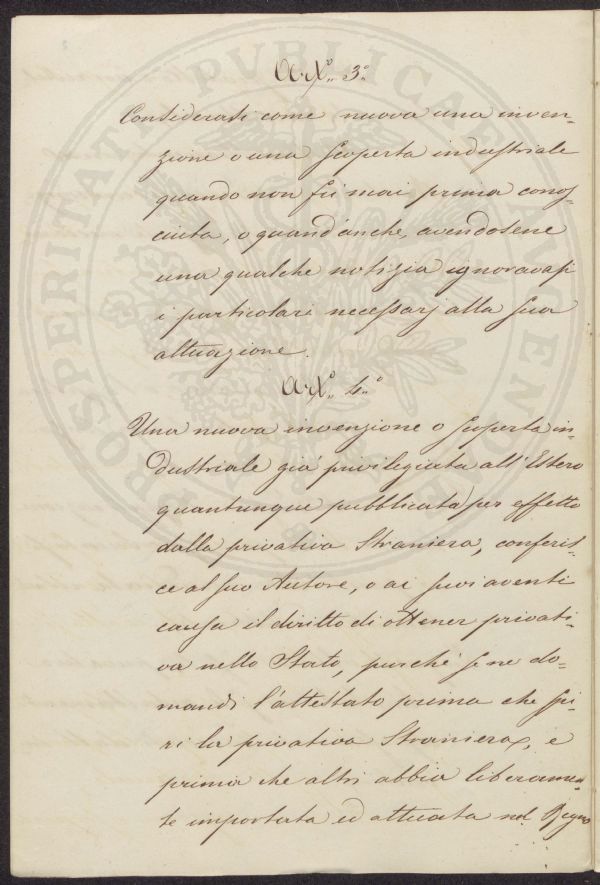 Art.° 3.°
Considerasi come nuova una inven-
zione o una scoperta industriale
quando non fù mai prima conos-
ciuta, o quand'anche, avendosene
una qualche notizia ignoravasi
i particolari necessarj alla sua
attuazione.
Art.° 4.°
Una nuova invenzione o scoperta in-
dustriale già privilegiata all'Estero
quantunque pubblicata per effetto
dalla privativa Straniera, conferis-
ce al suo Autore, o ai suoi aventi
causa il diritto di ottener privati-
va nello Stato, purchè se ne do-
mandi l'attestato prima che spi-
ri la privativa Straniera, e
prima che altri abbia liberamen-
te importata ed attuata nel Regno
PROSPERITATI PVBLICAE AVGENDAE